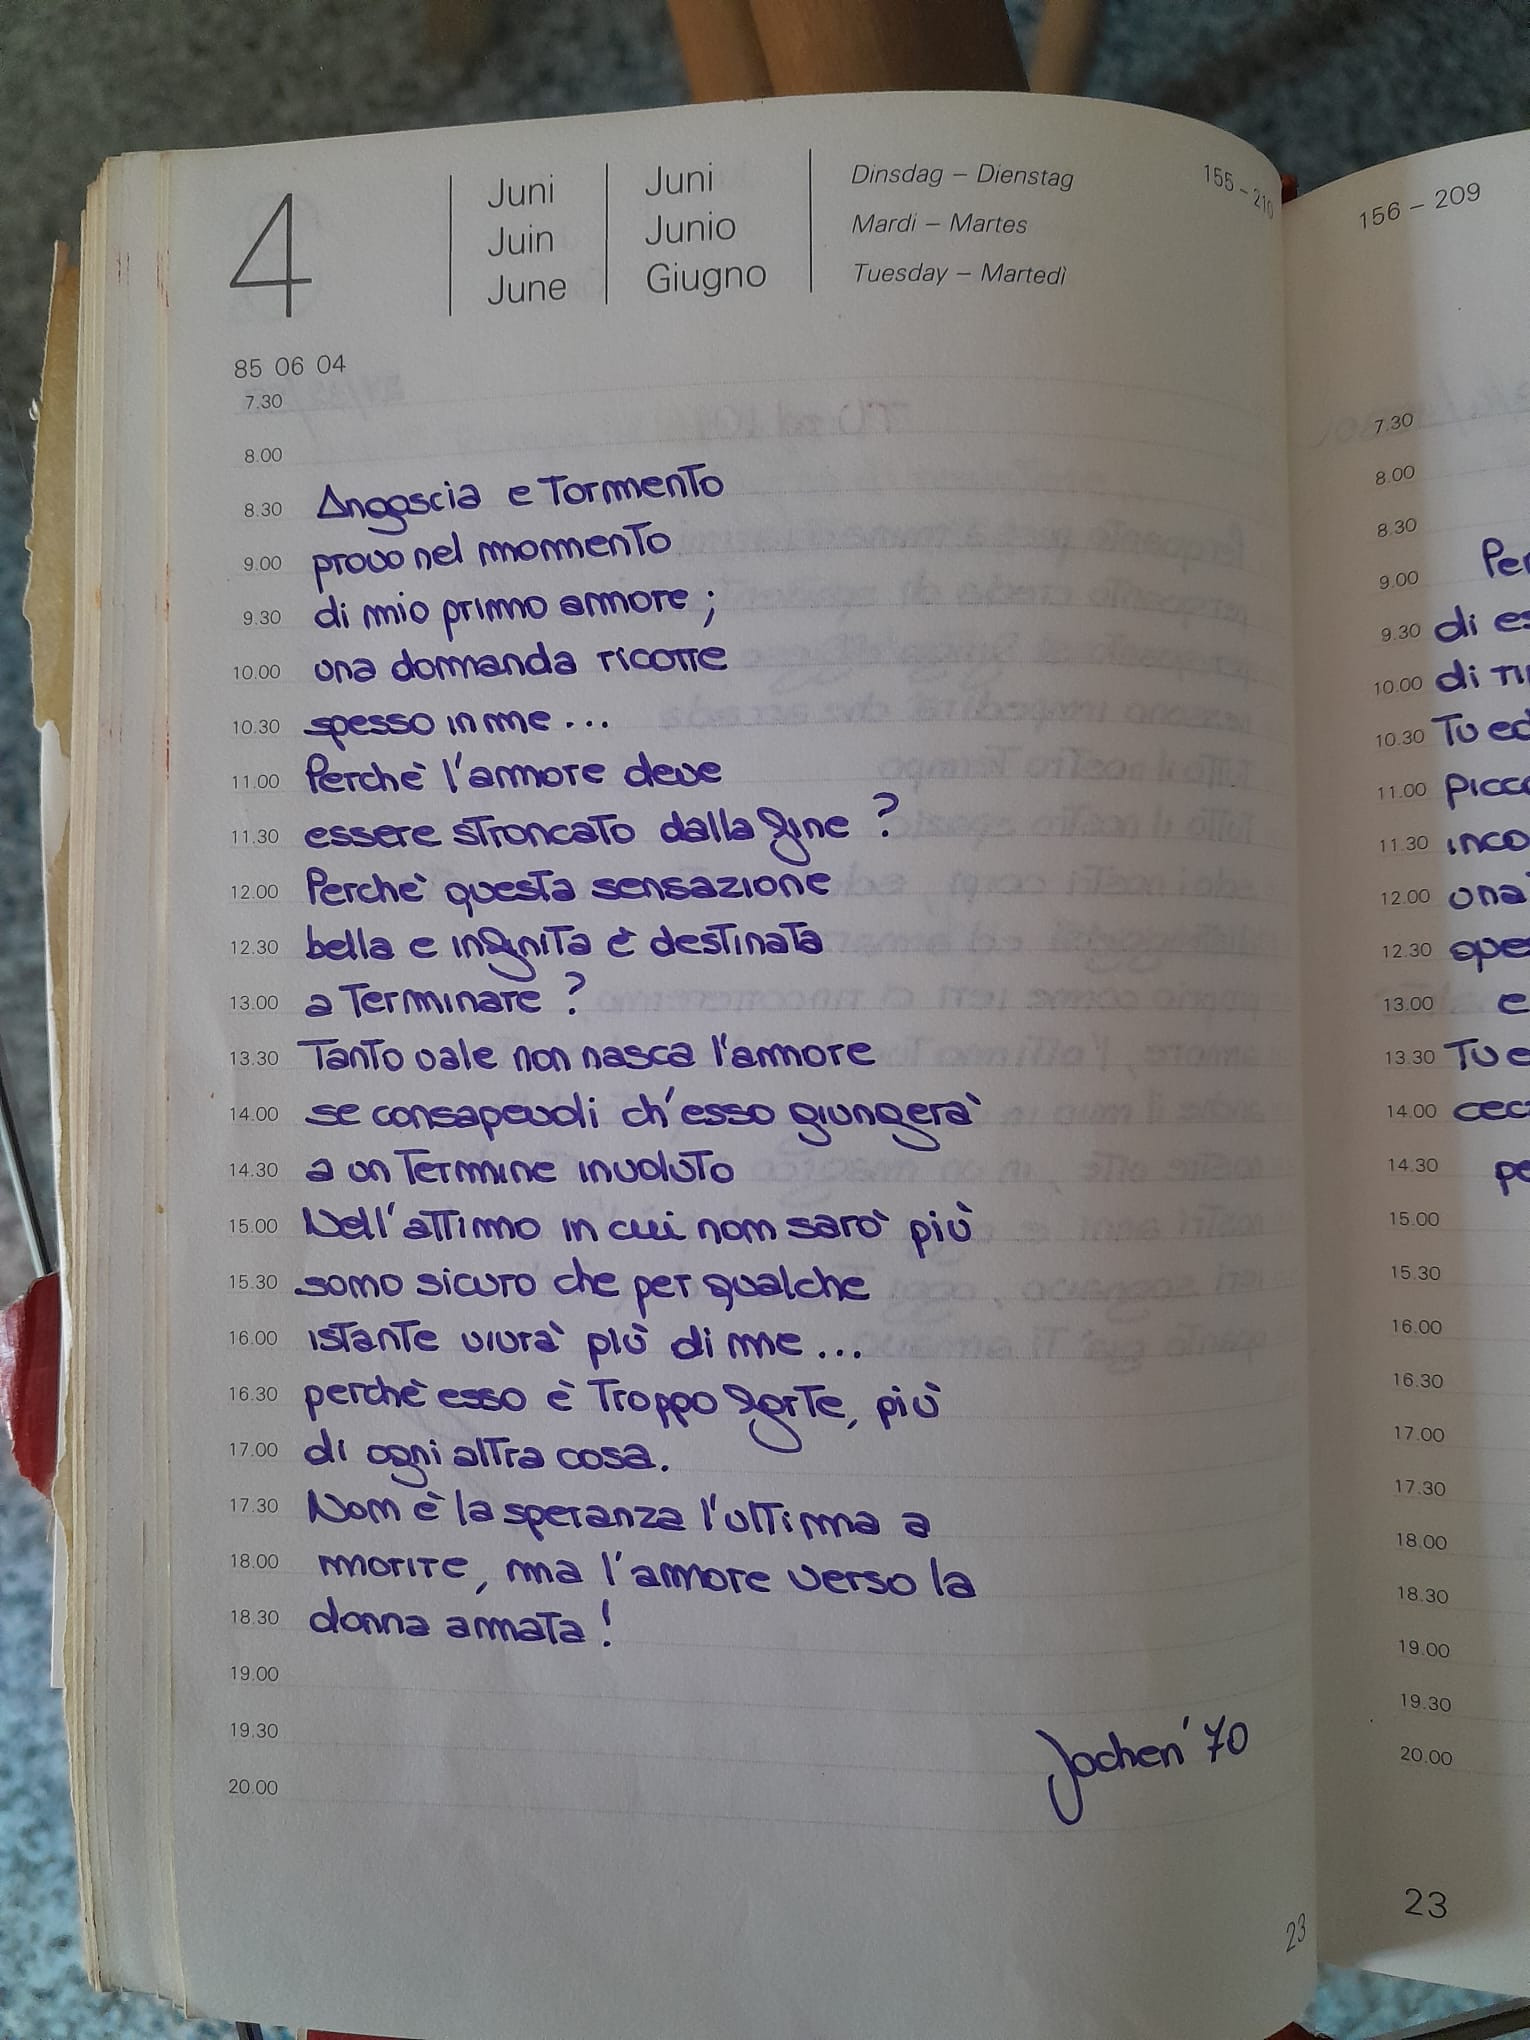 4
Juni
Juin
June
Juni
Junio
Giugno
Dinsdag – Dienstag
Mardi – Martes
Tuesday – Martedì
155 – 210
85 06 04
7.30
8.00
8.30 Angoscia e Tormento
9.00 provo nel momento
9.30 di mio primo amore ;
10.00 una domanda ricorre
10.30 spesso in me ...
11.00 Perchè l'amore deve
11.30 essere stroncato dalla fine ?
12.00 Perchè questa sensazione
12.30 bella e infinita è destinata
13.00 a Terminare ?
13.30 Tanto vale non nasca l'amore
14.00 se consapevoli ch'esso giungerà
14.30 a un Termine involuto
15.00 Nell'attimo in cui non sarò più
15.30 sono sicuro che per qualche
16.00 istante vivrà più di me ...
16.30 perchè esso è Troppo forte, più
17.00 di ogni altra cosa.
17.30 Non è la speranza l'ultima a
18.00 morire, ma l'amore verso la
18.30 donna amata !
19.00
19.30
20.00
Jochen '70
23
156 – 209
7.30
8.00
8.30
9.00
9.30 di
10.00 di
10.30 Tu
11.00
11.30
12.00 una
12.30
13.00 e
13.30 Tu
14.00
14.30
15.00
15.30
16.00
16.30
17.00
17.30
18.00
18.30
19.00
19.30
20.00
23